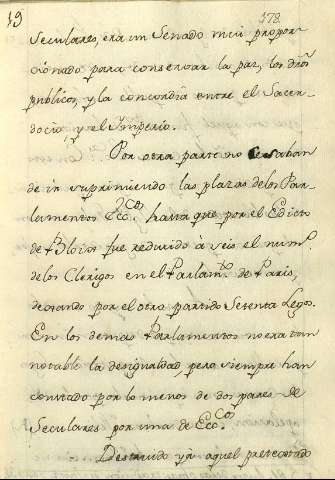 19
178
Seculares, era un Senado mui propor-
cionado para conservar la paz, los dros
publicos, y la concordia entre el Sacer-
docio, y el Imperio.
Por otra parte no cesaban
de ir suprimiendo las plazas de los Par-
lamentos Ecc.cos hasta que por el Edicto
de Blois fue reducido à seis el num.o
de los Clerigos en el Parlam.to de Paris,
dexando por el otro partido Setenta Legos.
En los demas Parlamentos no era tan
notable la desigualdad, pero siempre han
constado por lo menos de dos partes de
Seculares por una de Ecc.cos
Destruido ya aquel pretextado